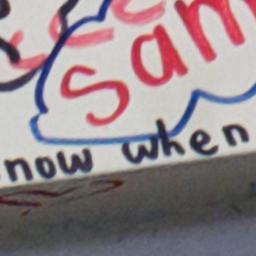 sam
now when